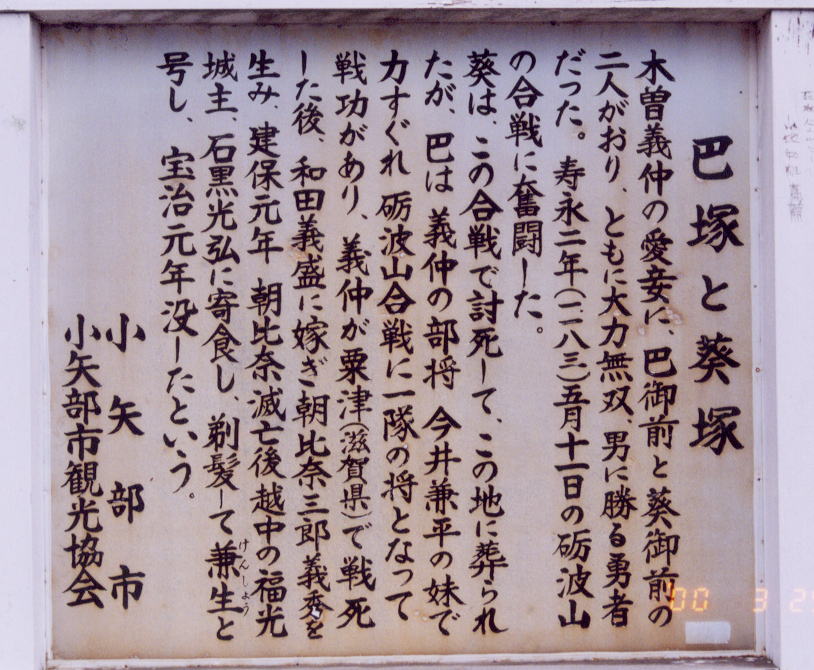 巴塚と葵塚
木曽義仲の愛妾に、巴御前と葵御前の
二人がおり、ともに大力無双、男に勝る勇者
だった。寿永二年(一一八三)五月十一日の砺波山
の合戦に奮闘した。
葵は、この合戦で討死して、この地に葬られ
たが、巴は義仲の部将 今井兼平の妹で
力すぐれ 砺波山合戦に一隊の将となって
戦功があり、義仲が粟津(滋賀県)で戦死
した後、和田義盛に嫁ぎ朝比奈三郎義秀を
生み、建保元年 朝比奈滅亡後越中の福光
城主、石黒光弘に寄食し、剃髪して兼生と
けんしょう
号し、宝治元年没したという。
小矢部市
小矢部市観光協会
00 3 2